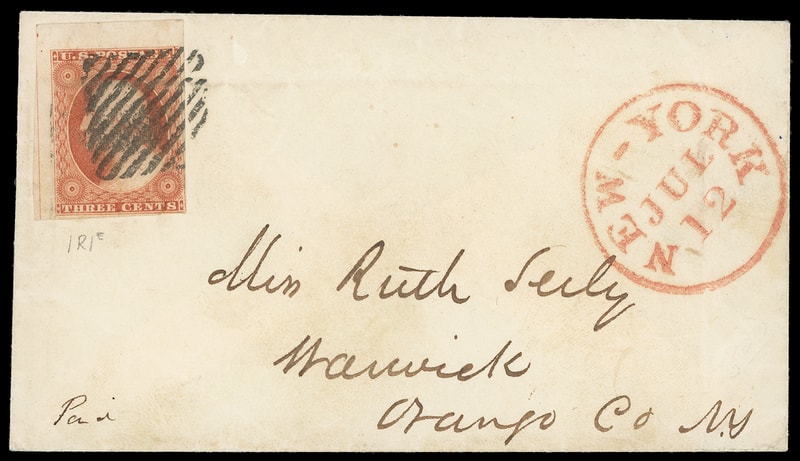 U.S. POSTAGE
THREE CENTS
1R1E
NEW-YORK
JUL
12
Miss Ruth Seely
Warwick
Orange Co N.Y
Paid